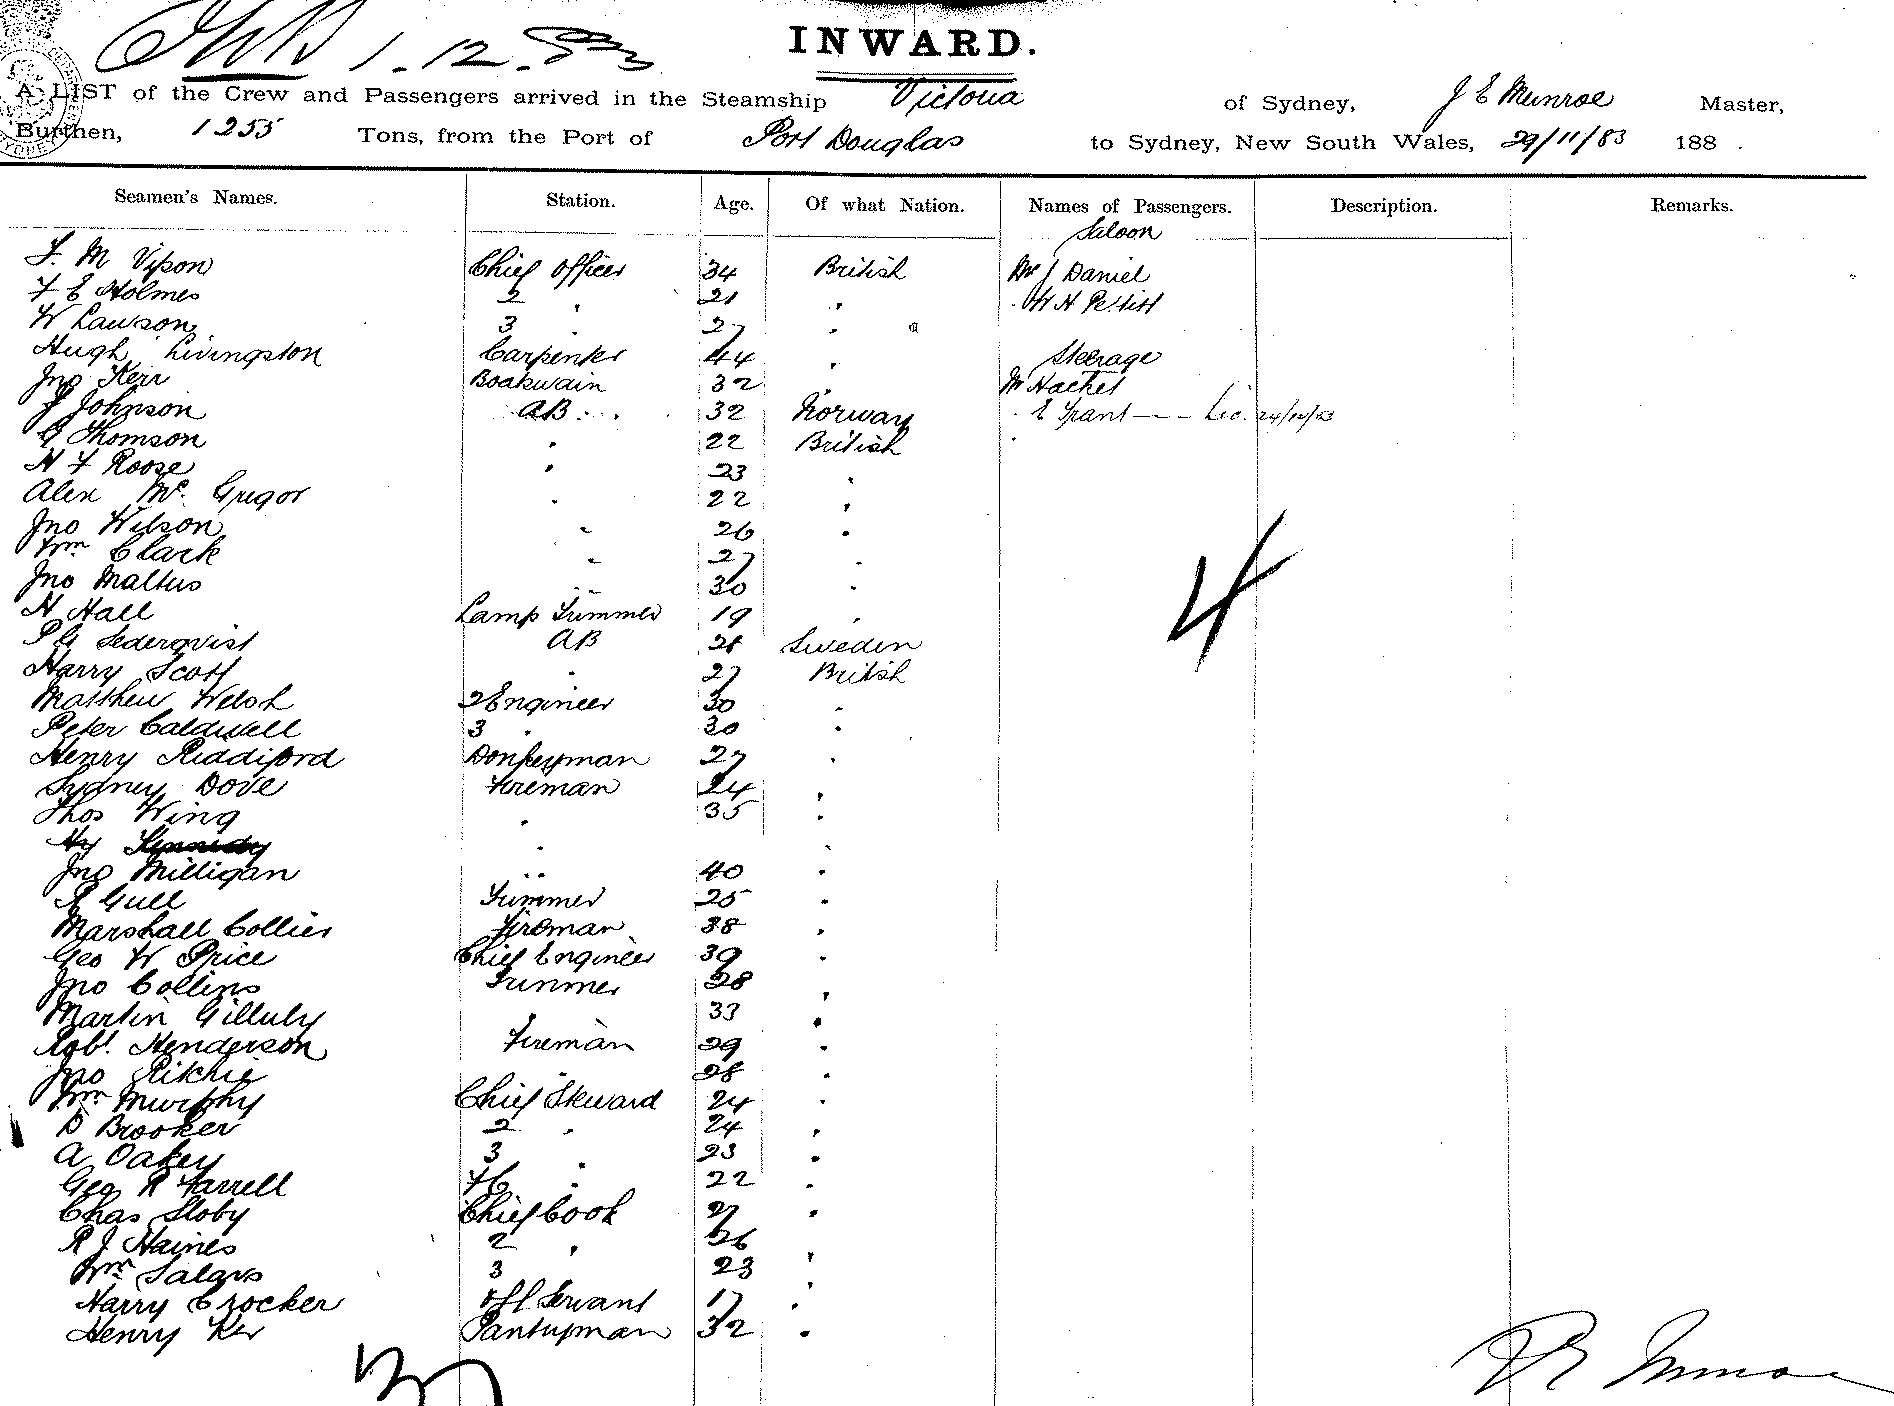 1.12.83
INWARD.
A LIST of the Crew and Passengers arrived in the Steamship Victoria of Sydney, J E Munroe Master,
Burthen, 1255 Tons, from the Port of Port Douglas to Sydney, New South Wales, 29/11/83 188 .
Seamen's Names. Station. Age. Of what Nation. Names of Passengers. Description. Remarks.
Saloon
F. M Vipon Chief Officer 34 British Mr J Daniel
F E Holmes 2 " 21 " " W H Pettitt
W Lawson 3 " 27 "
Hugh Livingston Carpenter 44 " Steerage
Jno Kerr Boatswain 32 " Mr Hachet
J Johnson AB 32 Norway " E Grant
G Thomson " 22 British
H F Roose " 23 "
Alex Mc Gregor " 22 "
Jno Wilson " 26 "
Wm Clark " 27 "
Jno Maltus " 30 "
H Hall Lamp Trimmer 19 "
P G Sederqvist AB 28 Sweden
Harry Scott " 27 British
Matthew Welsh 2 Engineer 30 "
Peter Caldwell 3 " 30 "
Henry Riddiford Donkeyman 27 "
Sydney Dove Fireman 24 "
Thos Wing " 35 "
Hy Kennedy " "
Jno Milligan " 40 "
R Gull Trimmer 25 "
Marshall Collier Fireman 38 "
Geo W Price Chief Engineer 39 "
Jno Collins Trimmer 28 "
Martin Gilluly 33 "
Robt. Henderson Fireman 29 "
Jno Ritchie " 28 "
Wm Murphy Chief Steward 24 "
D Brooker 2 " 24 "
A Oakey 3 " 23 "
Geo R Farrell " 22 "
Chas Sloby Chief Cook 27 "
R J Haines 2 " 26 "
Wm Salars 3 23 "
Harry Crocker Servant 17 "
Henry Ker Pantryman 32 "
4
J E Munroe